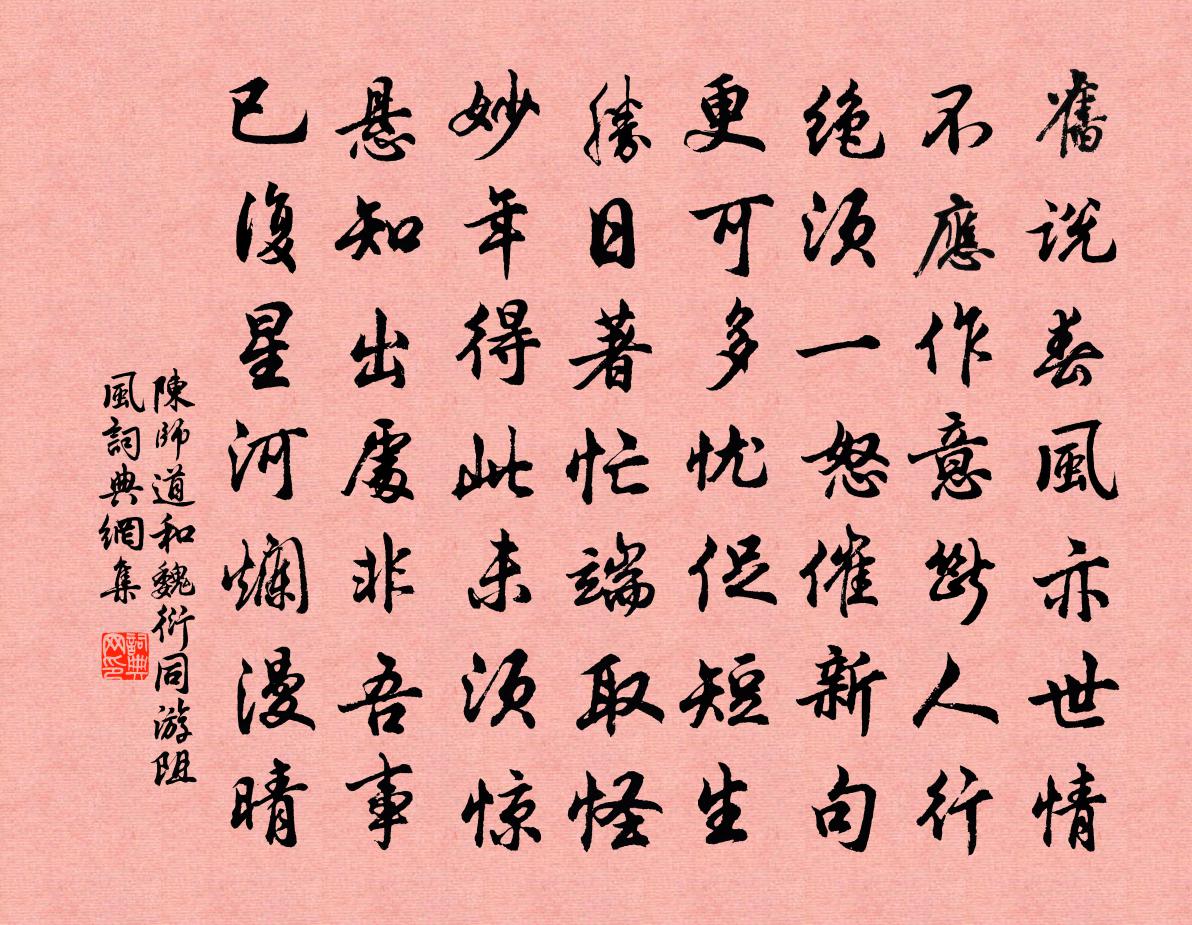 舊説春風亦世情
不應作意斷人行
绝须一怒催新句
更可多忧促短生
勝日著忙端取怪
妙年得此未须惊
悬知出處非吾事
已復星河爛漫晴
陳師道和魏衍同游阻
風詞典網集
詞典
网印